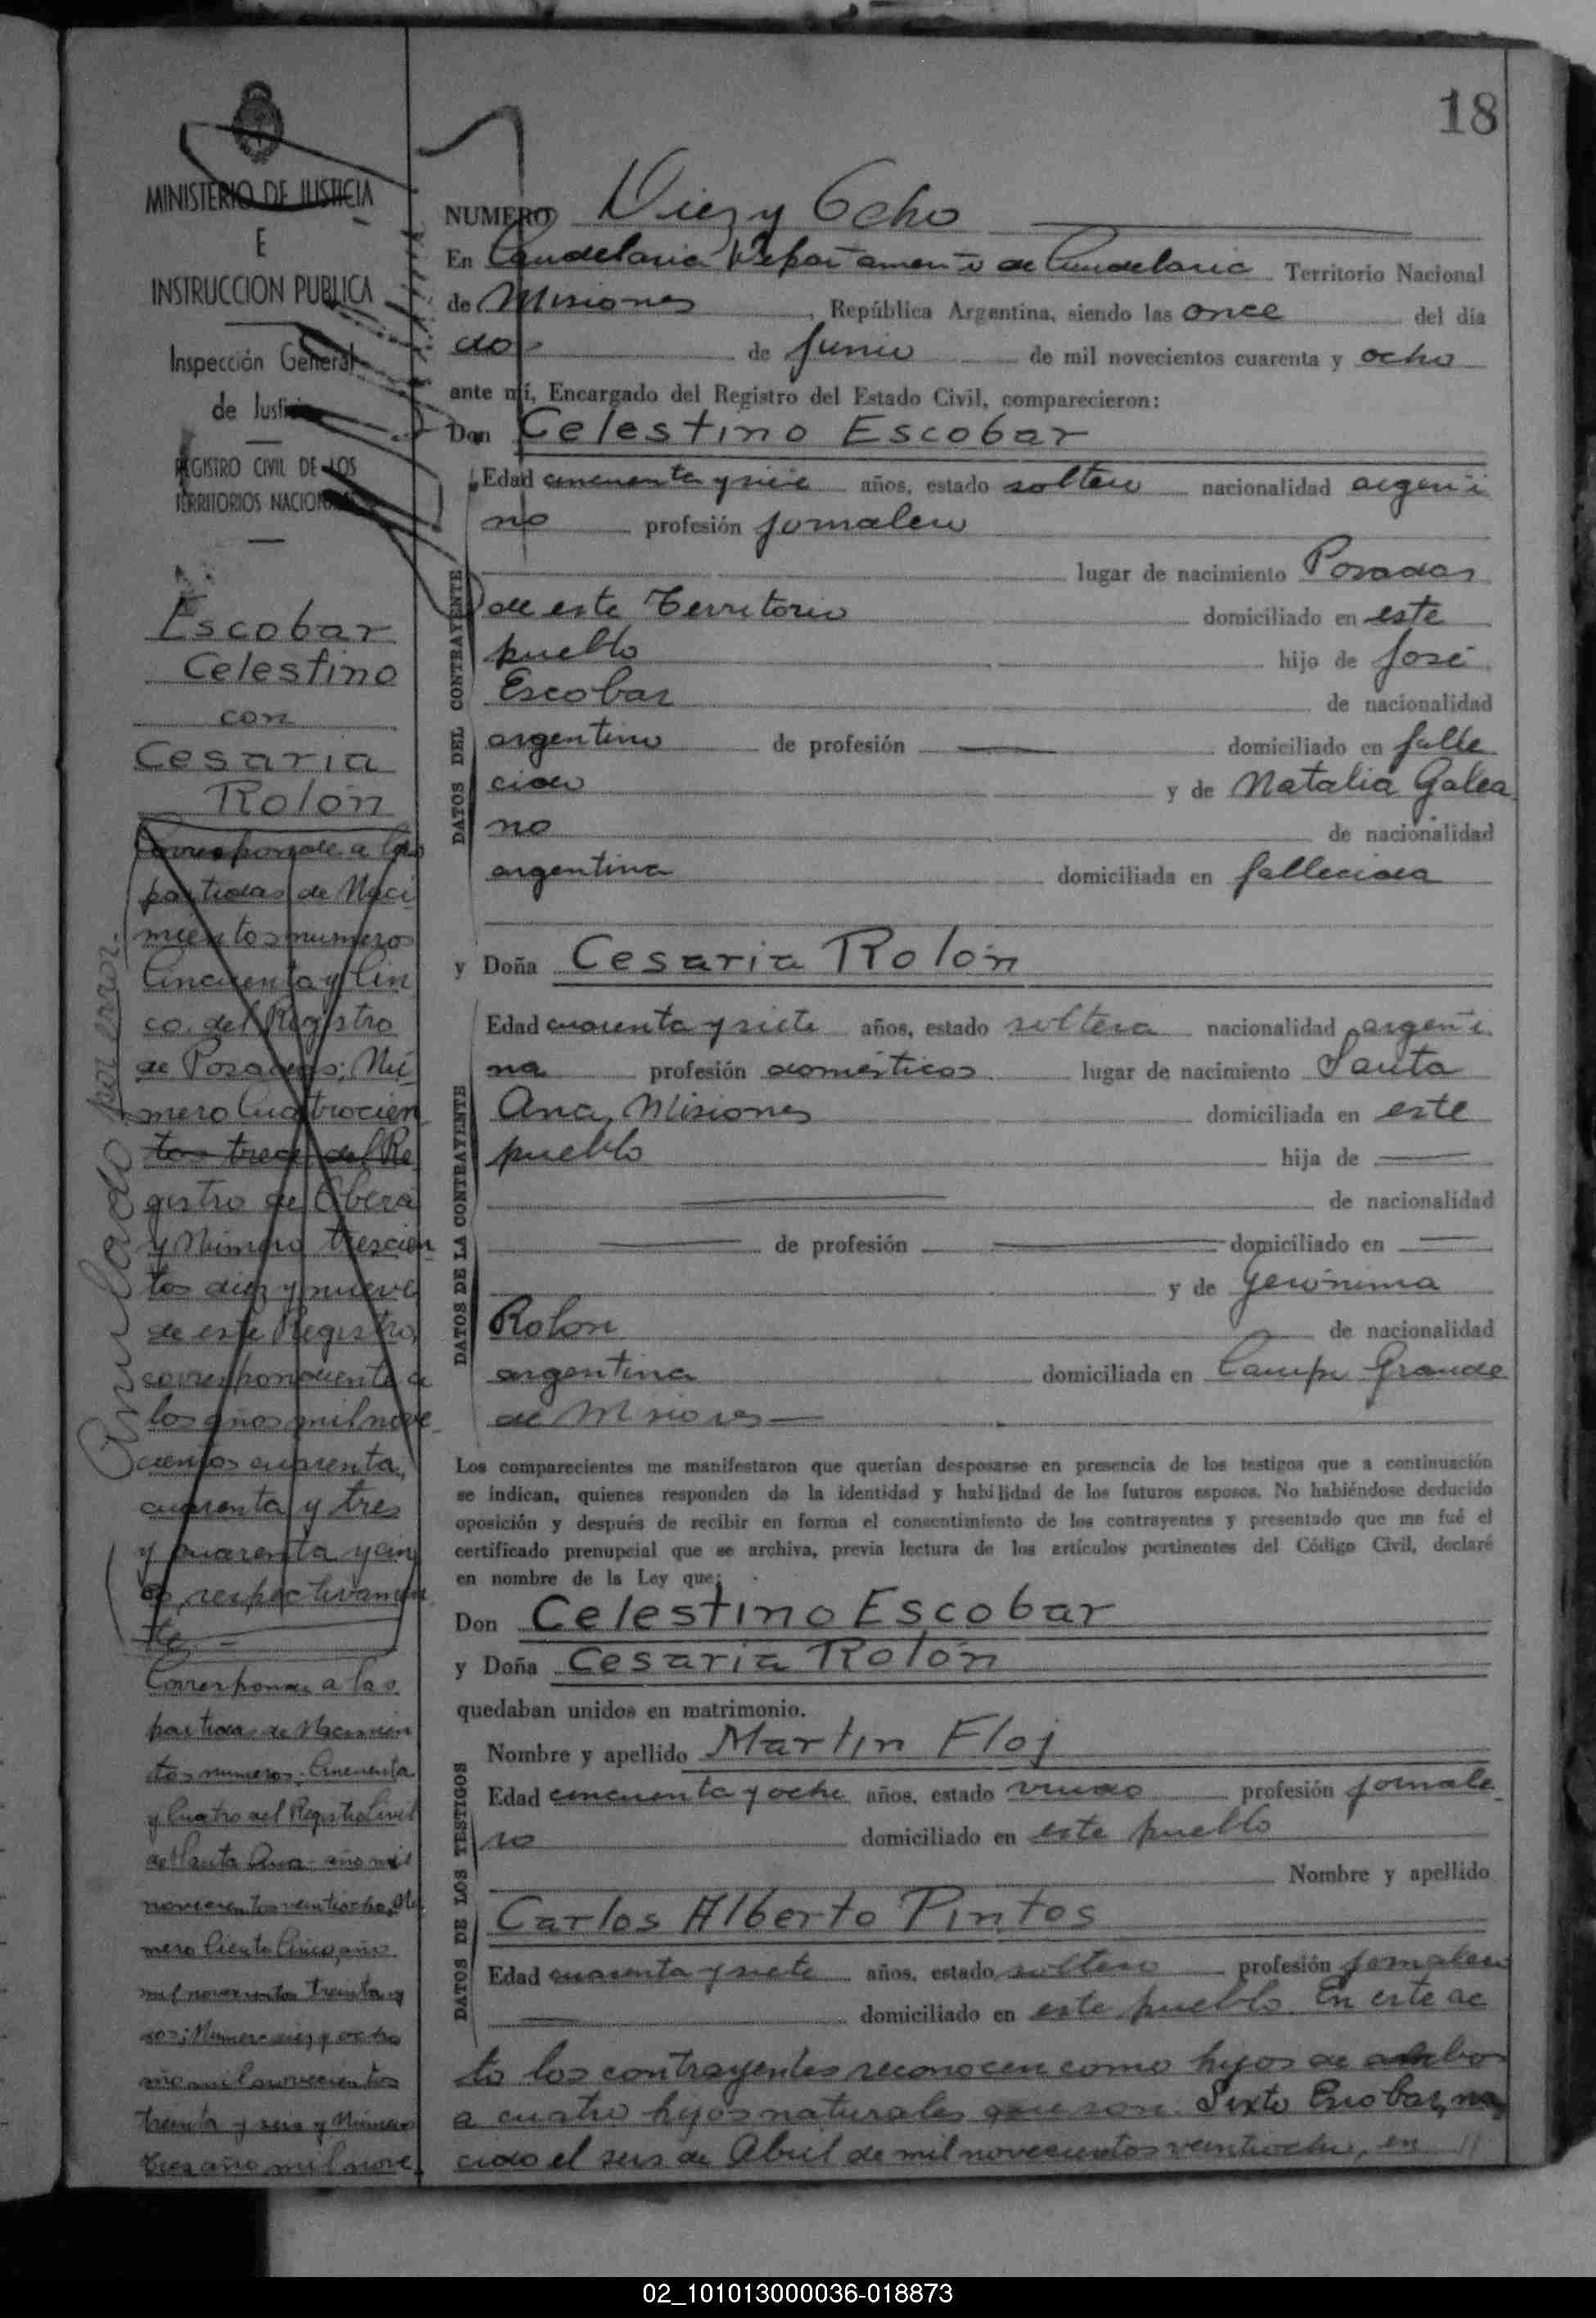 18
MINISTERIO DE JUSTICIA
E
INSTRUCCION PUBLICA
Inspección General
de Justicia
REGISTRO CIVIL DE LOS
TERRITORIOS NACIONALES
Escobar
Celestino
con
Cesaria
Rolón
Corresponde a las
partidas de Naci
mientos numeros
Cincuenta y Cin
co del Registro
de Posadas; Nú
mero Cuatrocien
tos trece del Re
gistro de Oberá
y Número trescien
tos diez y nueve
de este Registro,
correspondiente a
los años mil nove
cientos cuarenta,
cuarenta y tres
y cuarenta y cin
co, respectivamen
te.-
Anulado por error.
Corresponde a las
partidas de Nacimien
tos numeros: Cincuenta
y Cuatro del Registro Civil
de Santa Ana- año mil
novecientos veintiocho, Nú
mero Ciento Cinco, año
mil novecientos treinta y
dos; Numero diez y ocho
año mil novecientos
treinta y seis y Número
tres año mil nove
NUMERO Diez y Ocho
En Candelaria Departamento de Candelaria Territorio Nacional
de Misiones, República Argentina, siendo las once del día
dos de Junio de mil novecientos cuarenta y ocho
ante mí, Encargado del Registro del Estado Civil, comparecieron:
Don Celestino Escobar
DATOS DEL CONTRAYENTE
Edad cincuenta y siete años, estado soltero nacionalidad argenti
no profesión jornalero
lugar de nacimiento Posadas
de este Territorio domiciliado en este
pueblo hijo de José
Escobar de nacionalidad
argentino de profesión — domiciliado en falle
cido y de Natalia Galea
no de nacionalidad
argentina domiciliada en fallecida
y Doña Cesaria Rolón
DATOS DE LA CONTRAYENTE
Edad cuarenta y siete años, estado soltera nacionalidad argenti
na profesión domésticos lugar de nacimiento Santa
Ana, Misiones domiciliada en este
pueblo hija de —
— de nacionalidad
— de profesión — domiciliado en —
y de Gerónima
Rolon de nacionalidad
argentina domiciliada en Campo Grande
de Misiones—
Los comparecientes me manifestaron que querían desposarse en presencia de los testigos que a continuación
se indican, quienes responden de la identidad y habilidad de los futuros esposos. No habiéndose deducido
oposición y después de recibir en forma el consentimiento de los contrayentes y presentado que me fué el
certificado prenupcial que se archiva, previa lectura de los artículos pertinentes del Código Civil, declaré
en nombre de la Ley que:
Don Celestino Escobar
y Doña Cesaria Rolón
quedaban unidos en matrimonio.
DATOS DE LOS TESTIGOS
Nombre y apellido Martin Floj
Edad cincuenta y ocho años, estado viudo profesión jornale
ro domiciliado en este pueblo
Nombre y apellido
Carlos Alberto Pintos
Edad cuarenta y siete años, estado soltero profesión jornalero
— domiciliado en este pueblo. En este ac
to los contrayentes reconocen como hijos de ambos
a cuatro hijos naturales que son: Sixto Escobar, na
cido el seis de Abril de mil novecientos veintiocho, en //
02_101013000036-018873